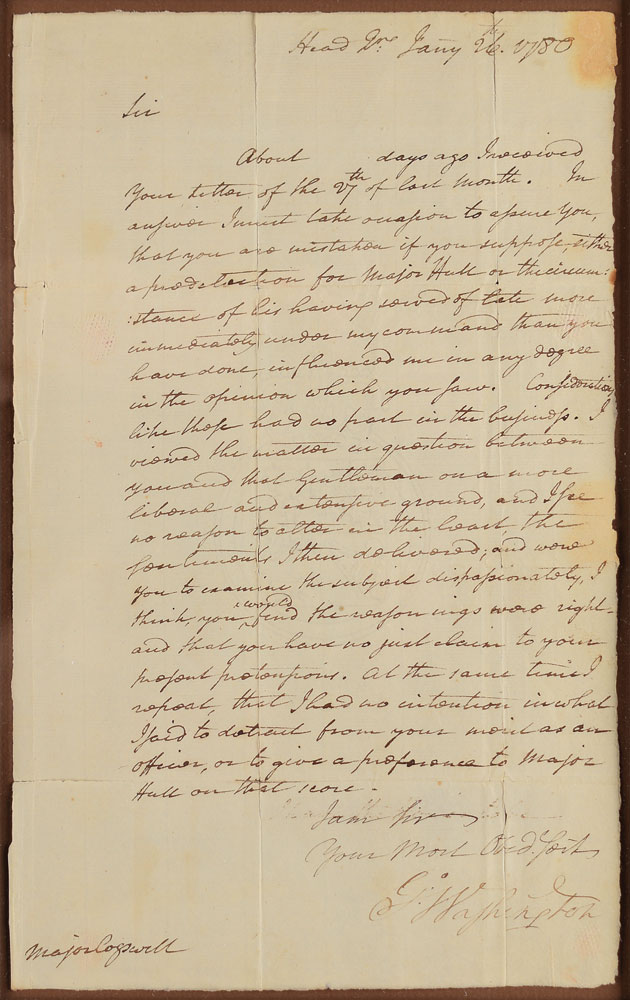 Head Qrs Jany 26th. 1780
Sir
About days ago I received
Your Letter of the 27th of last Month. In
answer I must take occasion to assure You,
that you are mistaken if you suppose either
a predelection for Major Hull or the circum:
:stance of his having served of late more
immediately under my command than you
have done, influenced me in any degree
in the opinion which you saw. Considerations
like these had no part in the business. I
viewed the matter in question between
you and that Gentleman on a more
liberal and extensive ground, and I see
no reason to alter in the least, the
sentiments I then delivered; and were
You to examine the subject dispassionately, I
think, you would find the reasonings were right-
and that you have no just claim to your
present pretensions. At the same time I
repeat, that I had no intention in what
I said to detract from your merit as an
officer, or to give a preference to Major
Hull on that score.
I am Sir
Your Most Obed. Servt
Go Washington
Major Cogswell